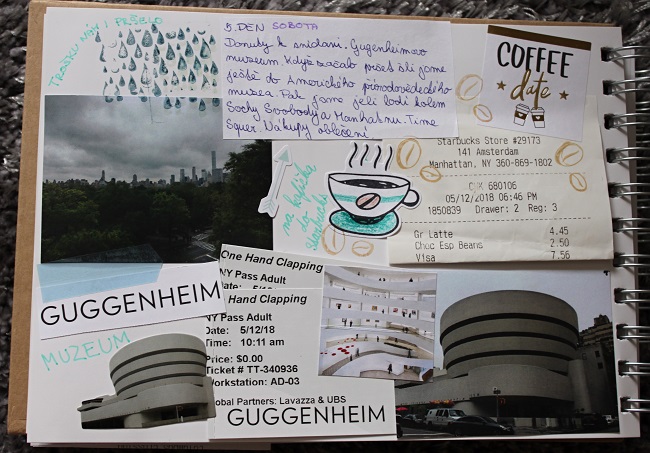 TROŠKU NÁM I PRŠELO
5. DEN SOBOTA
Donuty k snídani. Gugenheimovo
muzeum. Když začalo pršet šli jsme
ještě do Amerického přírodovědeckého
muzea. Pak jsme jeli lodí kolem
Sochy Svobody a Manhatnu. Time
Squer. Nákupy oblečení
COFFEE
date
Starbucks Store #29173
141 Amsterdam
Manhattan, NY 360-869-1802
680106
05/12/2018 06:46 PM
1850839 Drawer: 2 Reg: 3
Gr Latte 4.45
Choc Esp Beans 2.50
Visa 7.56
na kafíčko
do
Starbucks
One Hand Clapping
NY Pass Adult
GUGGENHEIM
MUZEUM
Hand Clapping
NY Pass Adult
Date: 5/12/18
Time: 10:11 am
Price: $0.00
Ticket # TT-340936
Workstation: AD-03
Global Partners: Lavazza & UBS
GUGGENHEIM